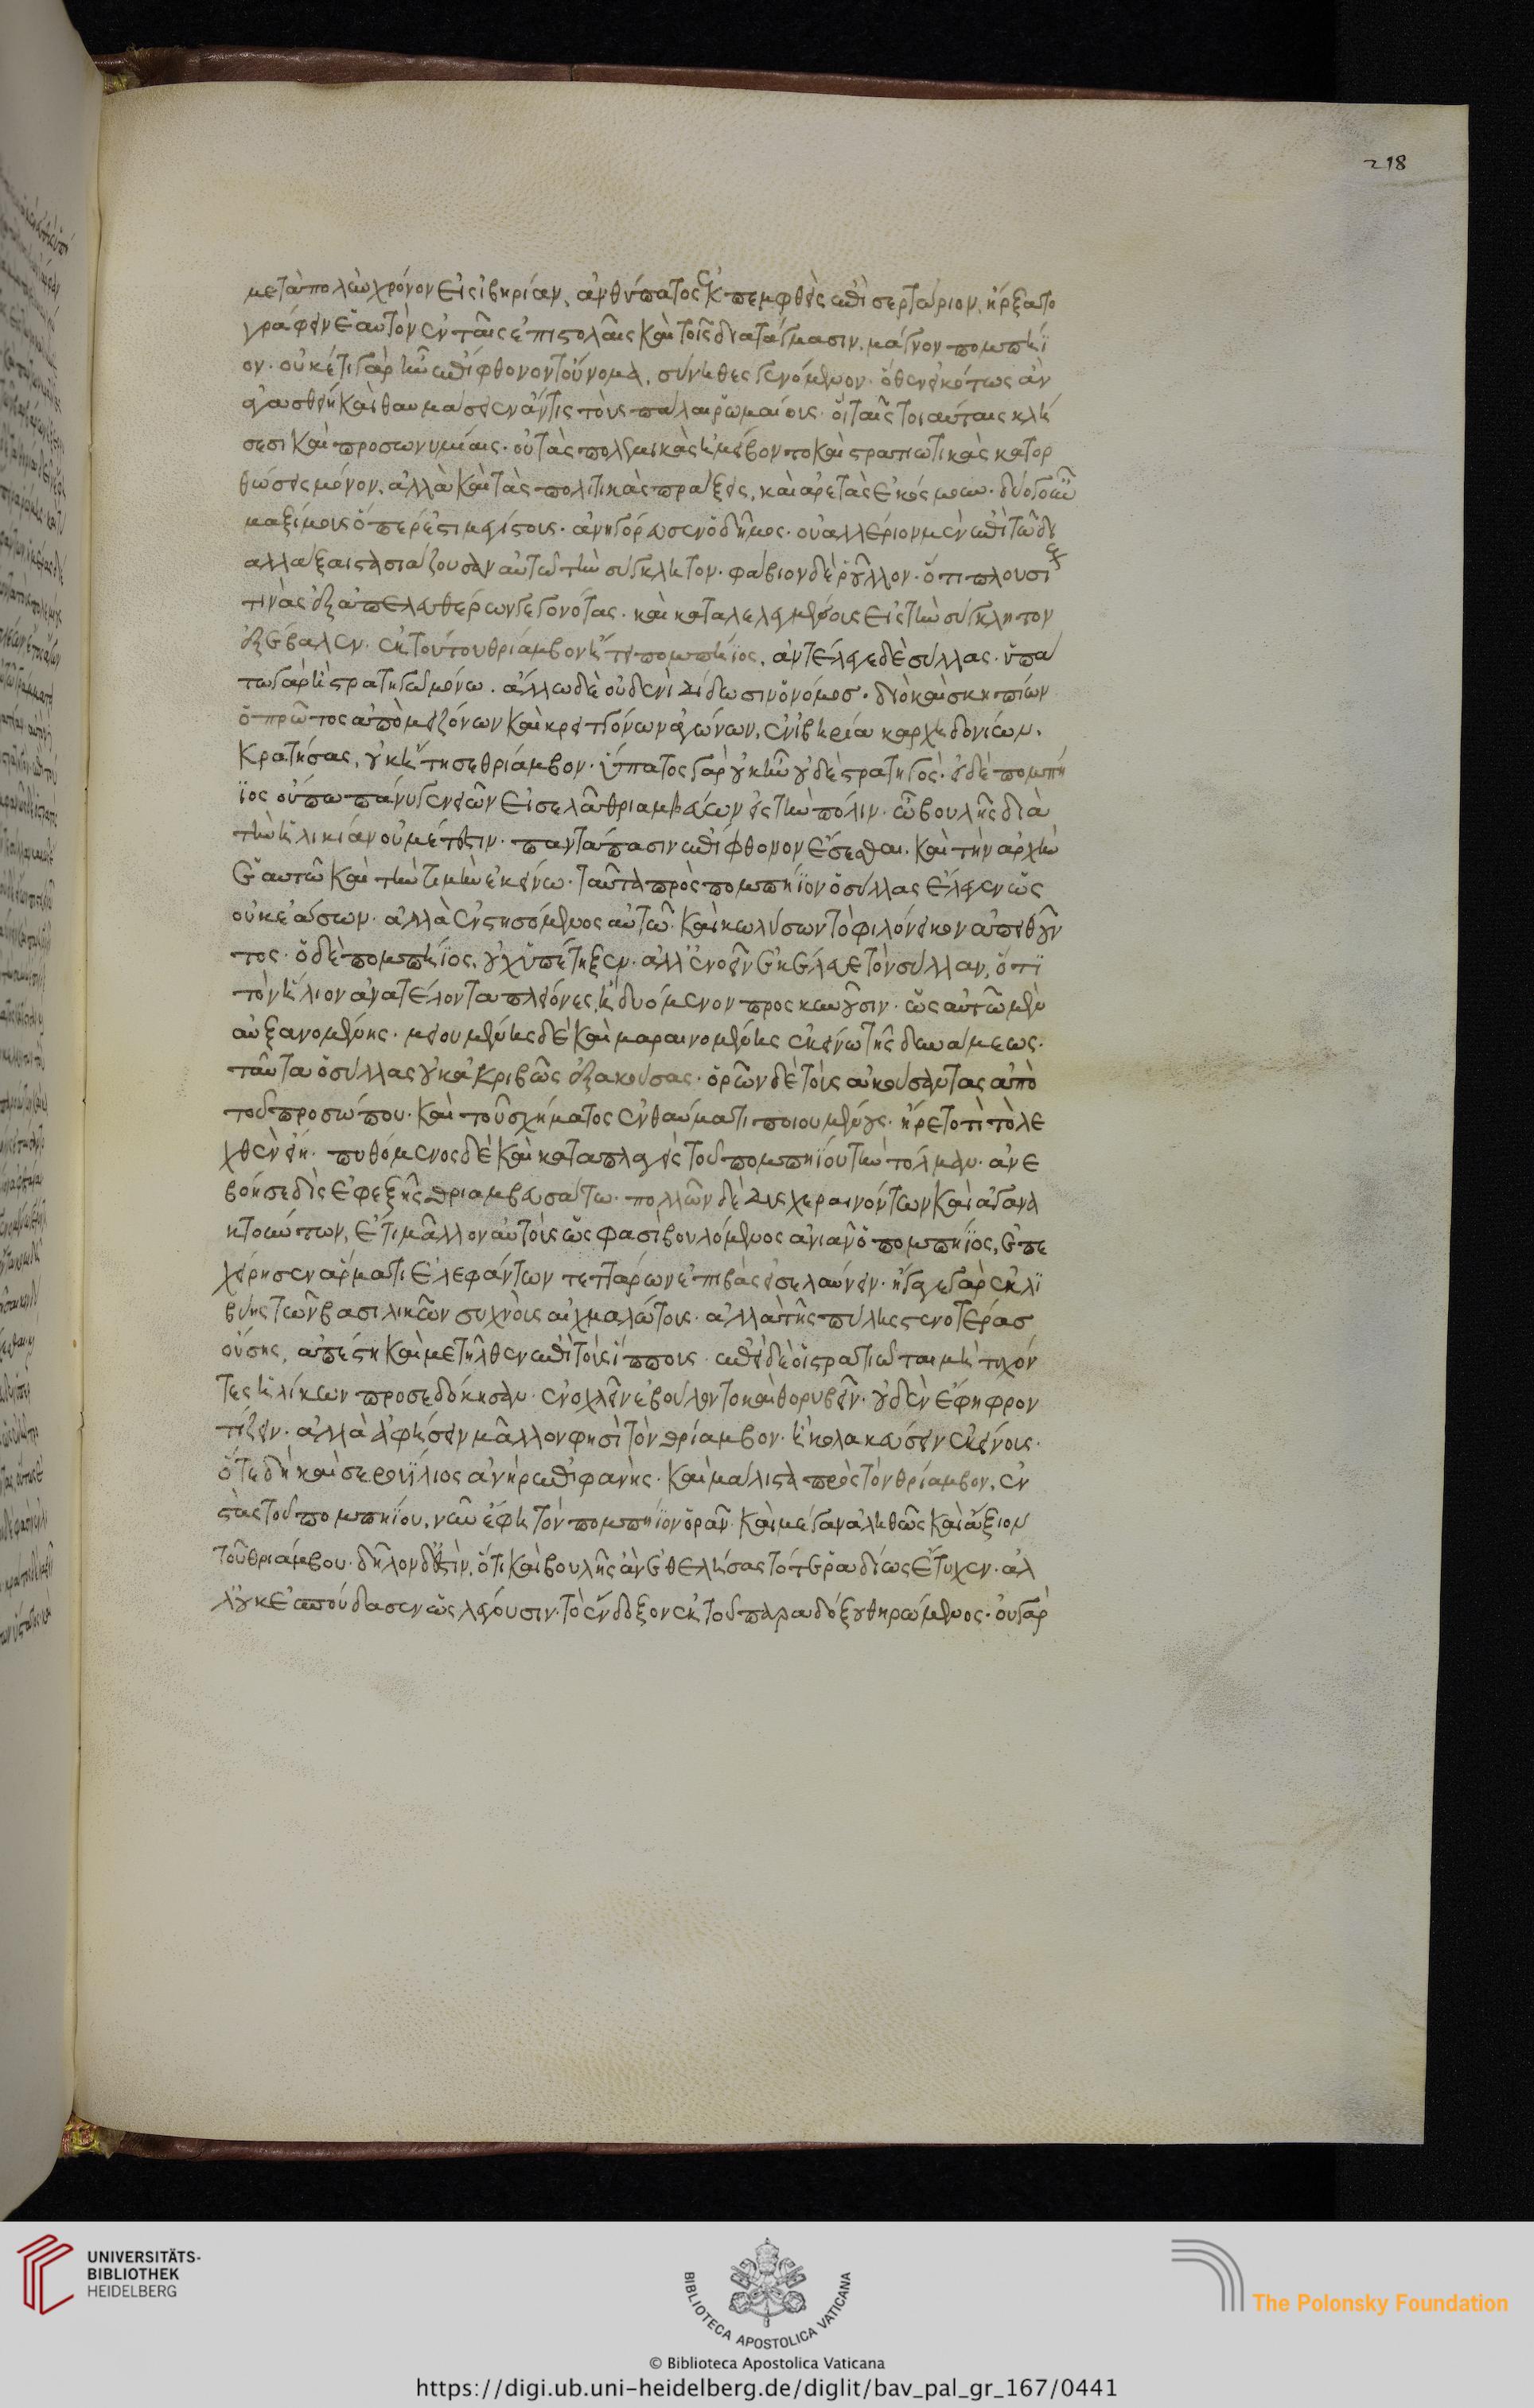 218
μετὰ πολὺν χρόνον εἰς ἰβηρίαν, ἀνθύπατος ἐκπεμφθεὶς ἐπὶ σερτώριον, ἤρξατο
γράφειν ἑαυτὸν ἐν ταῖς ἐπιστολαῖς καὶ τοῖς διατάγμασιν, μάγνον πομπήϊ
ον· οὐκέτι γὰρ ἦν ἐπίφθονον τοὔνομα, σύνηθες γενόμενον· ὅθεν εἰκότως ἀν
ἀγασθείη καὶ θαυμάσειεν ἄν τις τοὺς παλαι ῥωμαίους· οἳ ταῖς τοιαύταις κλή
σεσι καὶ προσωνυμίαις· οὐ τὰς πολεμικὰς ἠμείβοντο καὶ στρατιωτικὰς κατορ
θώσεις μόνον, ἀλλὰ καὶ τὰς πολιτικὰς πράξεις, καὶ ἀρετὰς ἐκόσμουν· δύο γοῦν
μαξίμους ὅπερ ἐστι μεγίστους· ἀνηγόρευσεν ὁ δῆμος· οὐαλλέριον μὲν ἐπὶ τῶ δι
αλλάξαι στασιάζουσαν αὐτῶ τὴν σύγκλητον· φάβιον δὲ ῥοῦλλον· ὅτι πλουσί
τινὰς ἐξ ἀπελευθέρων γεγονότας· καὶ καταλελεγμένους εἰς τὴν σύγκλητον
ἐξέβαλεν· ἐκ τούτου θρίαμβον ἤτει πομπήϊος, ἀντέλεγε δὲ σύλλας· ὑπά
τω γὰρ ἢ στρατηγῶ μόνω· ἄλλω δὲ οὐδενὶ δίδωσιν ὁ νόμος· διὸ καὶ σκηπίων
ὁ πρῶτος ἀπὸ μειζόνων καὶ κρειττόνων ἀγώνων, ἐν ἰβηρία καρχηδονίων,
κρατήσας, οὐκ ἤτησε θρίαμβον· ὕπατος γὰρ οὐκ ἦν οὐδὲ στρατηγός· εἰ δὲ πομπή
ϊος οὔπω πάνυ γενειῶν εἰσελᾶ θριαμβεύων εἰς τὴν πόλιν· ὧ βουλῆς διὰ
τὴν ἡλικίαν οὐ μέτεστιν· παντάπασιν ἐπίφθονον ἔσεσθαι, καὶ τὴν ἀρχὴν
ἑαυτῶ καὶ τὴν τιμὴν ἐκείνω· ταῦτα πρὸς πομπήϊον ὁ σύλλας ἔλεγεν ὡς
οὐκ ἐάσων· ἀλλὰ ἐνστησόμενος αὐτῶ· καὶ κωλύσων τὸ φιλόνεικον ἀπειθοῦν
τος· ὁ δὲ πομπήϊος, οὐχ ὑπέπτηξεν· ἀλλ' ἐννοεῖν ἐκέλευε τὸν σύλλαν, ὅτι
τὸν ἥλιον ἀνατέλλοντα πλείονες, ἢ δυόμενον προσκυνοῦσιν· ὡς αὐτῶ μὲν
αὐξανομένης· μειουμένης δὲ καὶ μαραινομένης ἐκείνω τῆς δυνάμεως·
ταῦτα ὁ σύλλας οὐκ ἀκριβῶς ἐξακούσας· ὁρῶν δὲ τοὺς ἀκούσαντας ἀπὸ
τοῦ προσώπου· καὶ τοῦ σχήματος ἐν θαύματι ποιουμένους· ἤρετο τί τὸ λε
χθὲν εἴη· πυθόμενος δὲ καὶ καταπλαγεὶς τοῦ πομπηΐου τὴν τόλμαν· ἀνε
βόησε δὶς ἐφεξῆς θριαμβευσάτω· πολλῶν δὲ δυσχεραινόντων καὶ ἀγανα
κτούντων, ἔτι μᾶλλον αὐτοὺς ὥς φασὶ βουλόμενος ἀνιᾶν ὁ πομπήϊος, ἐπε
χείρησεν ἅρματι ἐλεφάντων τεττάρων ἐπιβὰς εἰσελαύνειν· ἤγαγε γὰρ ἐκ λι
βύης τῶν βασιλικῶν συχνοὺς αἰχμαλώτους· ἀλλὰ τῆς πύλης στενοτέρασ
οὔσης, ἀπέστη καὶ μετῆλθεν ἐπὶ τοὺς ἵππους· ἐπεὶ δὲ οἱ στρατιῶται μὴ τυχόν
τες ἡλίκων προσεδόκησαν· ἐνοχλεῖν ἐβούλοντο καὶ θορυβεῖν· οὐδὲν ἔφη φρον
τίζειν· ἀλλὰ ἀφήσειν μᾶλλον φησὶ τὸν θρίαμβον· ἢ κολακεύσειν ἐκείνους·
ὅτε δὴ καὶ σερουΐλιος ἀνὴρ ἐπιφανὴς· καὶ μάλιστα πρὸς τὸν θρίαμβον, ἐν
στὰς τοῦ πομπηΐου, νῦν ἔφη τὸν πομπήϊον ὁρᾶν· καὶ μέγαν ἀληθῶς καὶ ἄξιον
τοῦ θριάμβου· δῆλον δ' ἐστὶν, ὅτι καὶ βουλῆς ἂν ἐθελήσας τότε ῥαδίως ἔτυχεν· ἀλ
λ' οὐκ ἐσπούδασεν ὡς λέγουσιν· τὸ ἔνδοξον ἐκ τοῦ παραδόξου θηρώμενος· οὐ γὰρ
UNIVERSITÄTS-
BIBLIOTHEK
HEIDELBERG
BIBLIOTECA APOSTOLICA VATICANA
The Polonsky Foundation
© Biblioteca Apostolica Vaticana
https://digi.ub.uni-heidelberg.de/diglit/bav_pal_gr_167/0441